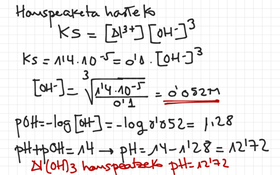 Hauspeaketa hasteko
KS = [Al³⁺] [OH⁻]³
KS = 1'4·10⁻⁵ = 0'1·[OH⁻]³
[OH⁻] = ³√(1'4·10⁻⁵ / 0'1) = 0'052M
pOH = -log [OH⁻] = -log 0'052 = 1,28
pH + pOH = 14 → pH = 14 - 1'28 = 12'72
Al(OH)3 hauspeatzeko pH = 12'72